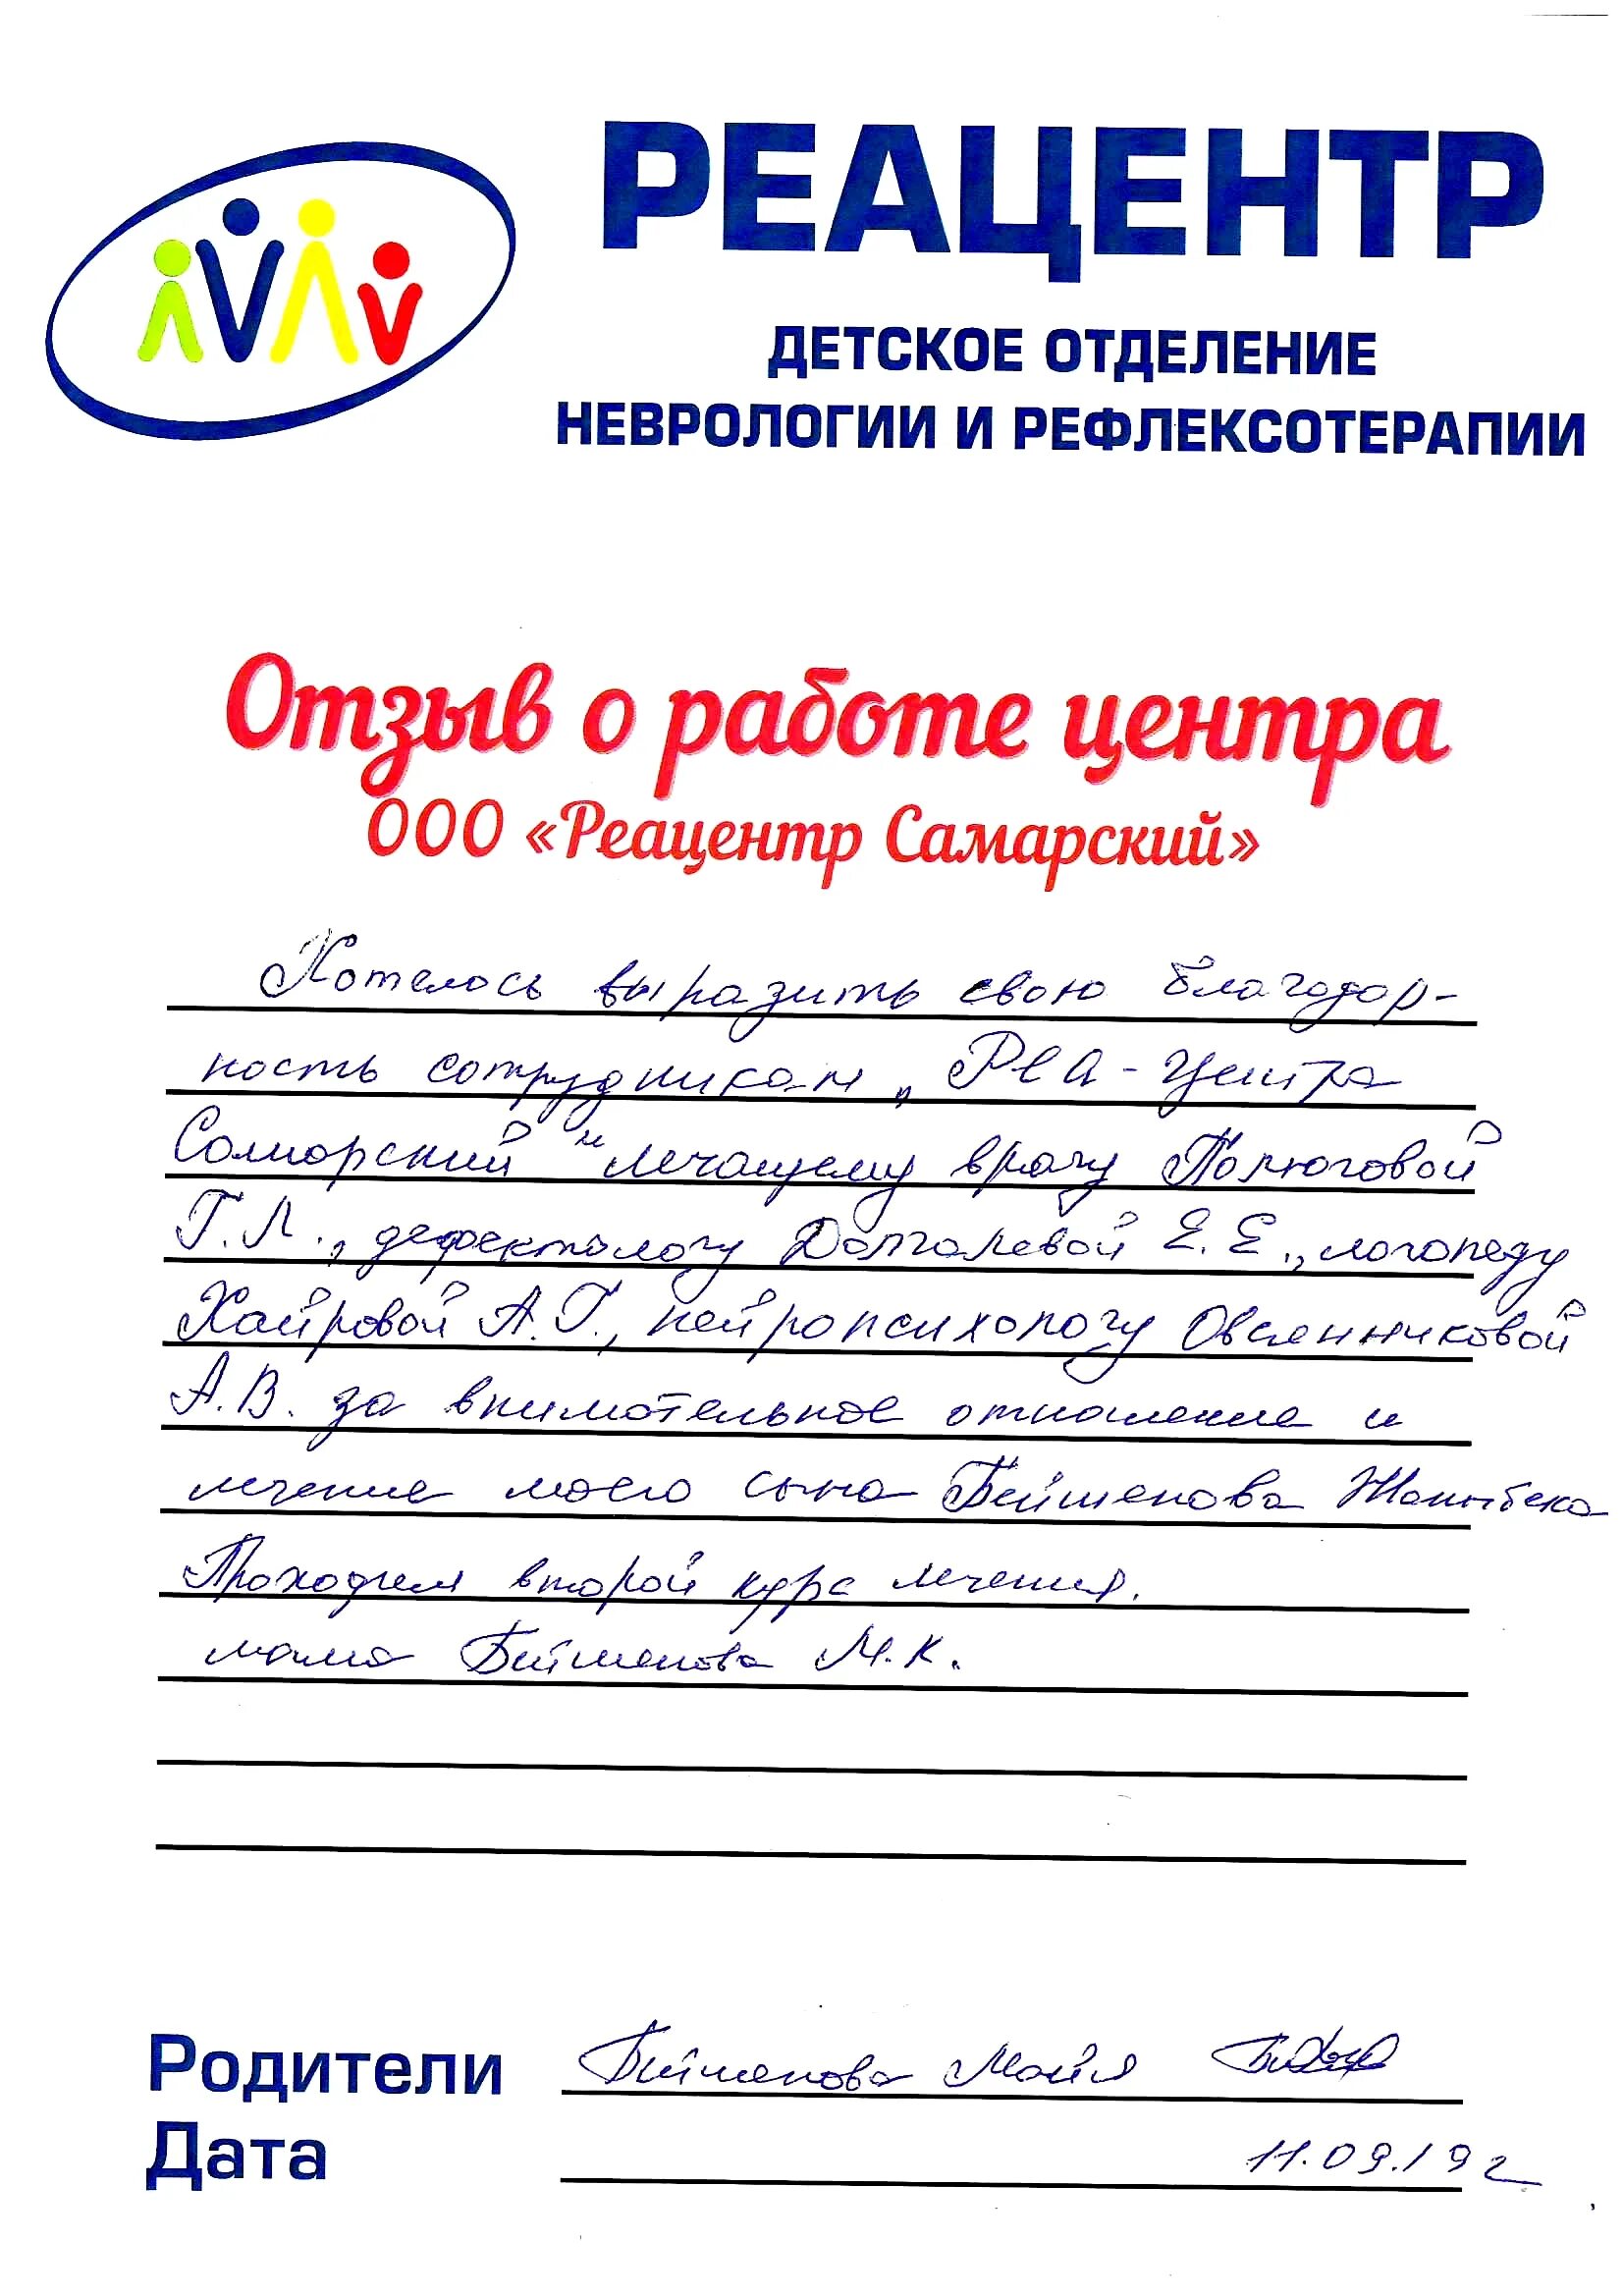 РЕАЦЕНТР
ДЕТСКОЕ ОТДЕЛЕНИЕ
НЕВРОЛОГИИ И РЕФЛЕКСОТЕРАПИИ
Отзыв о работе центра
ООО «Реацентр Самарский»
Хотелось выразить свою благодар-
ность сотрудникам „РЕА-Центра
Самарский“ лечащему врачу
Г.Л., дефектологу Долгалевой Е.Е., логопеду
Хайровой А.Г., нейропсихологу Овсянниковой
А.В. за внимательное отношение и
лечение моего сына Бейшенова Жаныбека
Проходим второй курс лечения.
мама Бейшенова М.К.
Родители Бейшенова Майя
Дата 11.09.19г